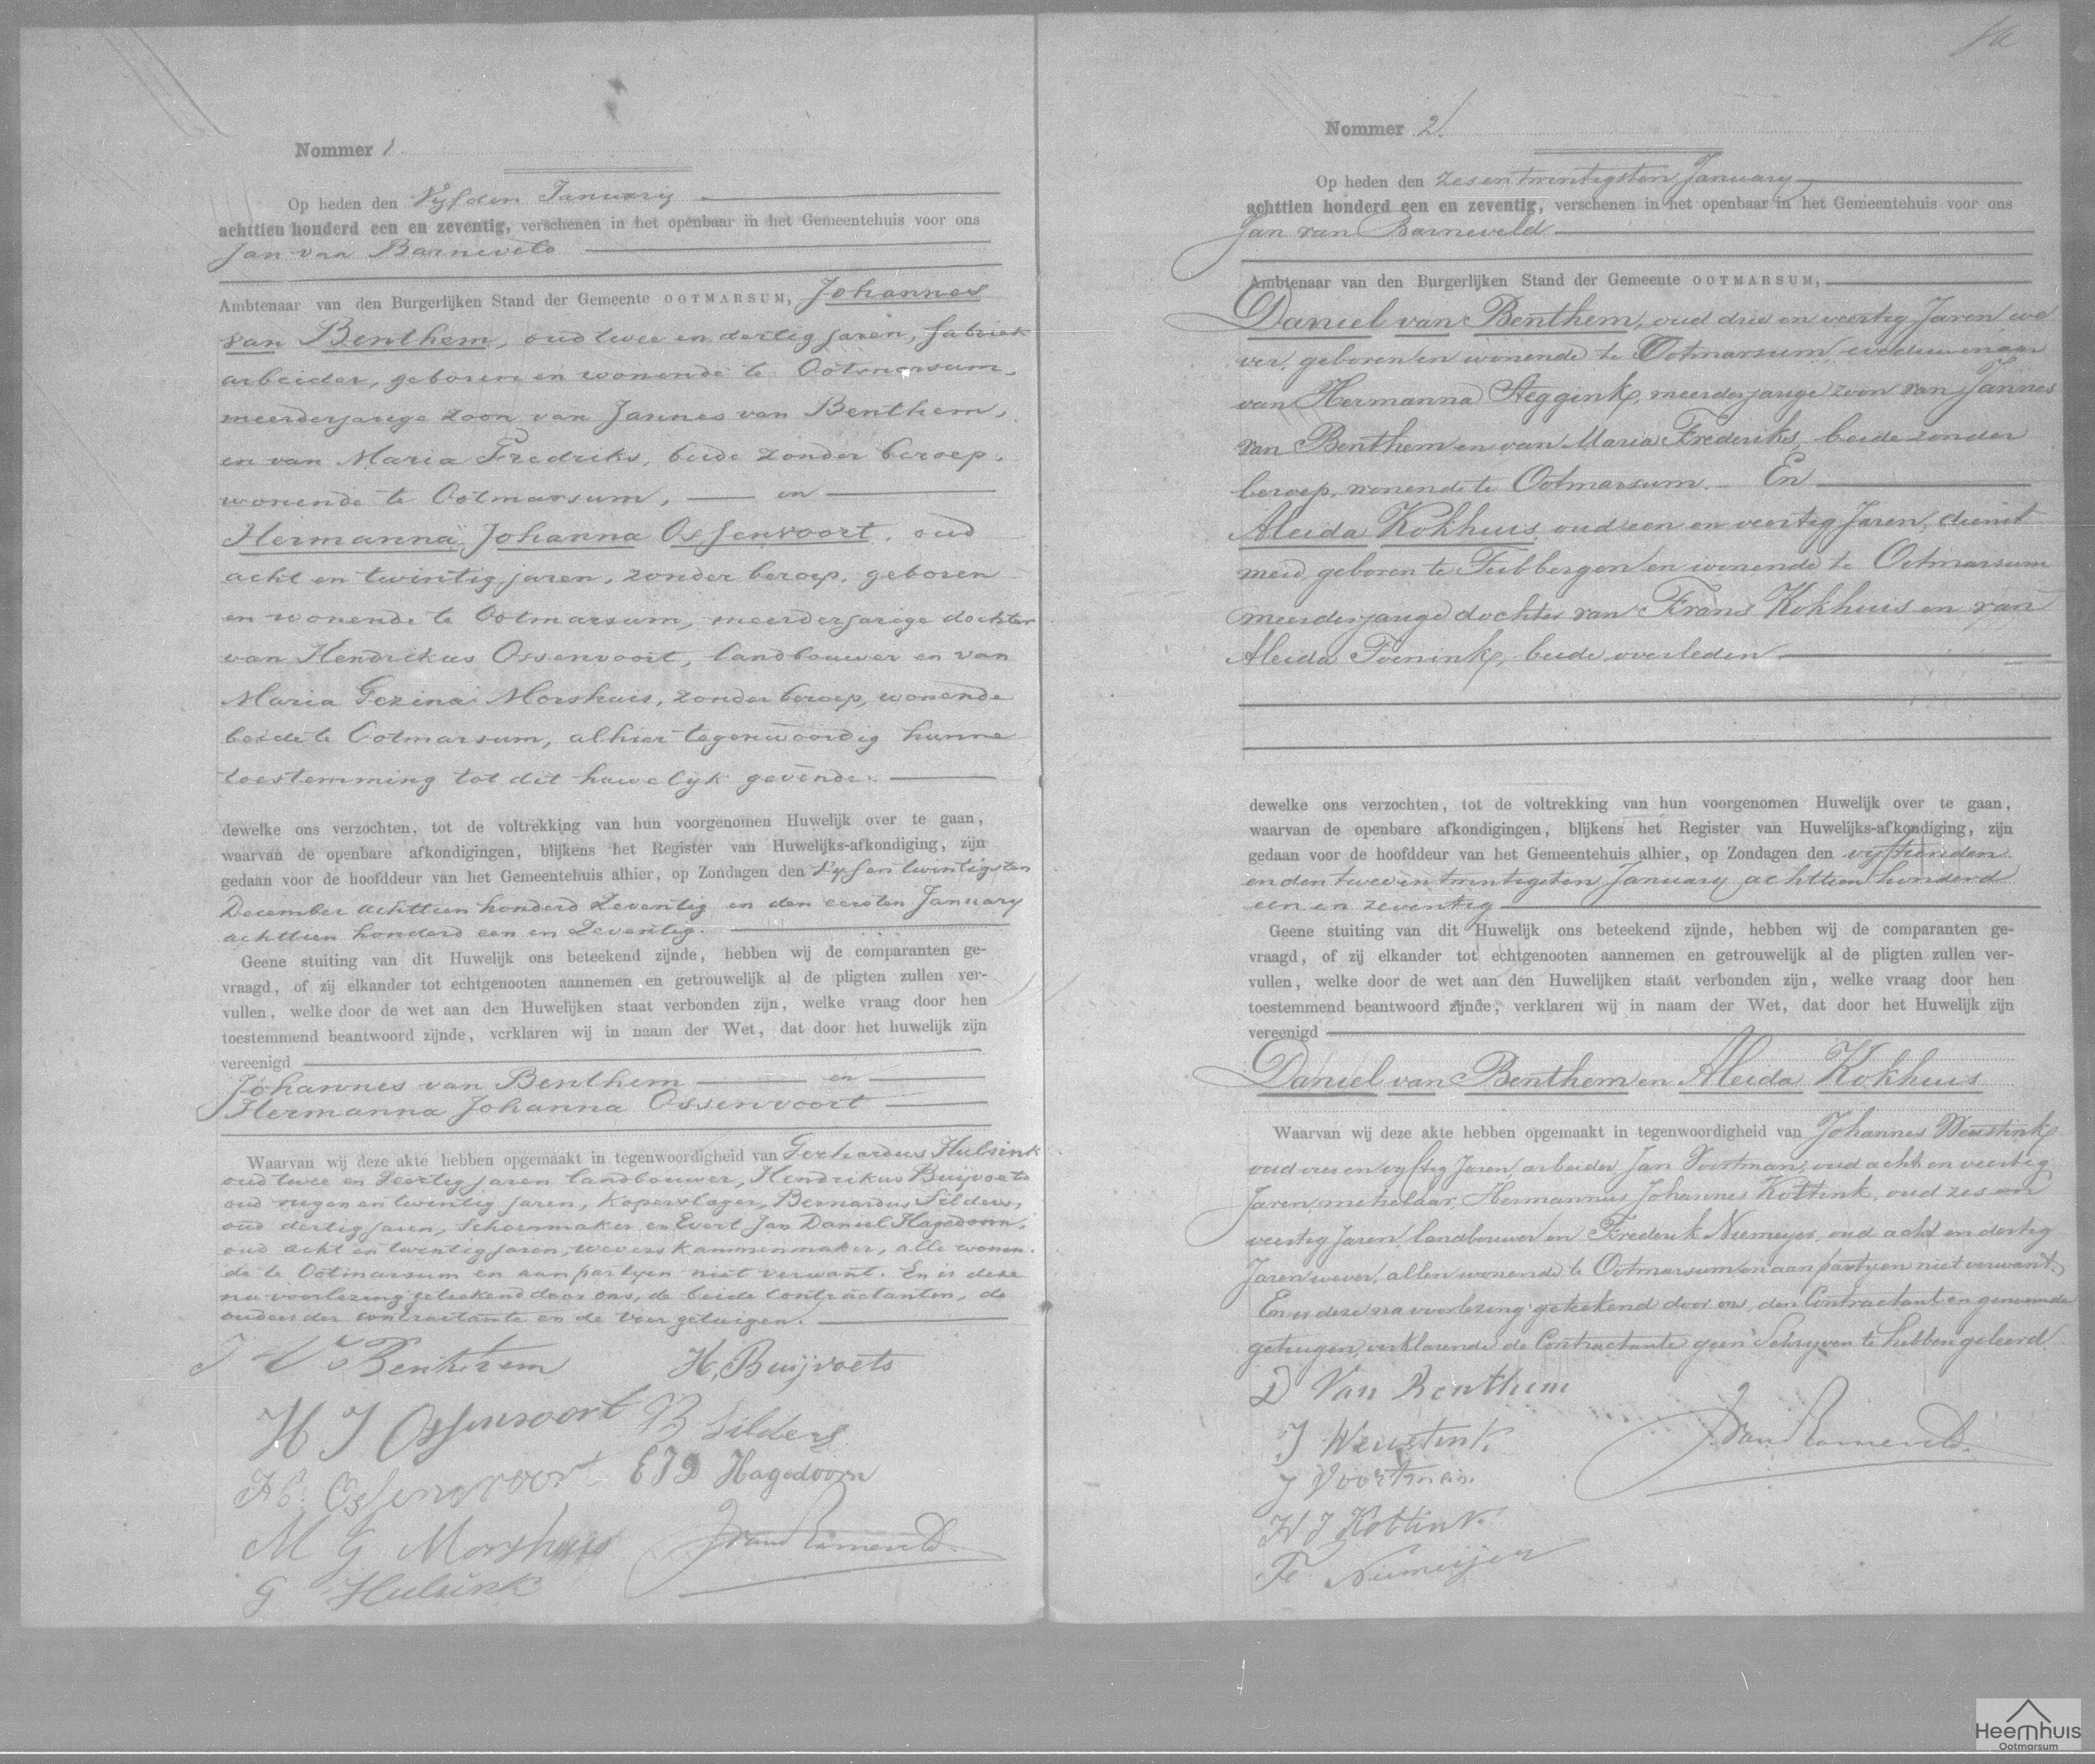 Nommer 1
Op heden den Vijfden January
achttien honderd een en zeventig, verschenen in het openbaar in het Gemeentehuis voor ons
Jan van Barneveld
Ambtenaar van den Burgerlijken Stand der Gemeente OOTMARSUM, Johannes
van Benthem, oud twee en dertig jaren, fabriek
arbeider, geboren en wonende te Ootmarsum,
meerderjarige zoon van Jannes van Benthem,
en van Maria Fredriks, beide zonder beroep,
wonende te Ootmarsum, en
Hermanna Johanna Ossenvoort, oud
acht en twintig jaren, zonder beroep, geboren
en wonende te Ootmarsum, meerderjarige dochter
van Hendrikus Ossenvoort, landbouwer en van
Maria Gezina Morshuis, zonder beroep, wonende
beide te Ootmarsum, alhier tegenwoordig hunne
toestemming tot dit huwelijk gevende.
dewelke ons verzochten, tot de voltrekking van hun voorgenomen Huwelijk over te gaan,
waarvan de openbare afkondigingen, blijkens het Register van Huwelijks-afkondiging, zijn
gedaan voor de hoofddeur van het Gemeentehuis alhier, op Zondagen den Vijf en twintigsten
December achttien honderd Zeventig en den eersten January
achttien honderd een en Zeventig.
Geene stuiting van dit Huwelijk ons beteekend zijnde, hebben wij de comparanten ge-
vraagd, of zij elkander tot echtgenooten aannemen en getrouwelijk al de pligten zullen ver-
vullen, welke door de wet aan den Huwelijken staat verbonden zijn, welke vraag door hen
toestemmend beantwoord zijnde, verklaren wij in naam der Wet, dat door het huwelijk zijn
vereenigd
Johannes van Benthem en
Hermanna Johanna Ossenvoort
Waarvan wij deze akte hebben opgemaakt in tegenwoordigheid van Gerhardus Hulsink
oud twee en Veertig jaren landbouwer, Hendrikus Buijvoets
oud negen en twintig jaren, koperslager, Bernardus Silders,
oud dertig jaren, schoenmaker en Evert Jan Daniel Hagedoorn,
oud acht en twintig jaren, weverskammenmaker, alle wonen-
de te Ootmarsum en aan partyen niet verwant. En is deze
na voorlezing geteekend door ons, de beide contractanten, de
ouders der contractante en de vier getuigen.
J V Benthem
H, Buijvoets
H J Ossenvoort
B Silders
Ossenvoort
E J D Hagedoorn
M G Morshuis
J van Barneveld
G Hulsink
Nommer 2.
Op heden den zesentwintigsten January
achttien honderd een en zeventig, verschenen in het openbaar in het Gemeentehuis voor ons
Jan van Barneveld
Ambtenaar van den Burgerlijken Stand der Gemeente OOTMARSUM,
Daniel van Benthem, oud drie en veertig Jaren, we
ver, geboren en wonende te Ootmarsum, weduwenaar
van Hermanna Steggink, meerderjarige zoon van Jannes
van Benthem en van Maria Frederiks, beide zonder
beroep, wonende te Ootmarsum. En
Aleida Kokhuis, oud een en veertig Jaren, dienst
meid, geboren te Tubbergen en wonende te Ootmarsum
meerderjarige dochter van Frans Kokhuis en van
Aleida Toenink, beide overleden
dewelke ons verzochten, tot de voltrekking van hun voorgenomen Huwelijk over te gaan,
waarvan de openbare afkondigingen, blijkens het Register van Huwelijks-afkondiging, zijn
gedaan voor de hoofddeur van het Gemeentehuis alhier, op Zondagen den vyftienden
en den twee en twintigsten January achttien honderd
een en zeventig
Geene stuiting van dit Huwelijk ons beteekend zijnde, hebben wij de comparanten ge-
vraagd, of zij elkander tot echtgenooten aannemen en getrouwelijk al de pligten zullen ver-
vullen, welke door de wet aan den Huwelijken staat verbonden zijn, welke vraag door hen
toestemmend beantwoord zijnde, verklaren wij in naam der Wet, dat door het Huwelijk zijn
vereenigd
Daniel van Benthem en Aleida Kokhuis
Waarvan wij deze akte hebben opgemaakt in tegenwoordigheid van Johannes Weustink,
oud vier en vyftig Jaren, arbeider, Jan Voortman, oud acht en veertig
Jaren, metselaar, Hermannus Johannes Kottink, oud zes en
veertig Jaren, landbouwer en Frederik Niemeijer, oud acht en dertig
Jaren wever, allen wonende te Ootmarsum en aan partyen niet verwant.
En is deze na voorlezing geteekend door ons, den Contractant en genoemde
getuigen, verklarende de Contractante geen Schryven te hebben geleerd.
D Van Benthem
J Weustink.
J van Barneveld.
J Voortman.
H J Kottink.
Fe Niemeijer
Heemhuis
Ootmarsum